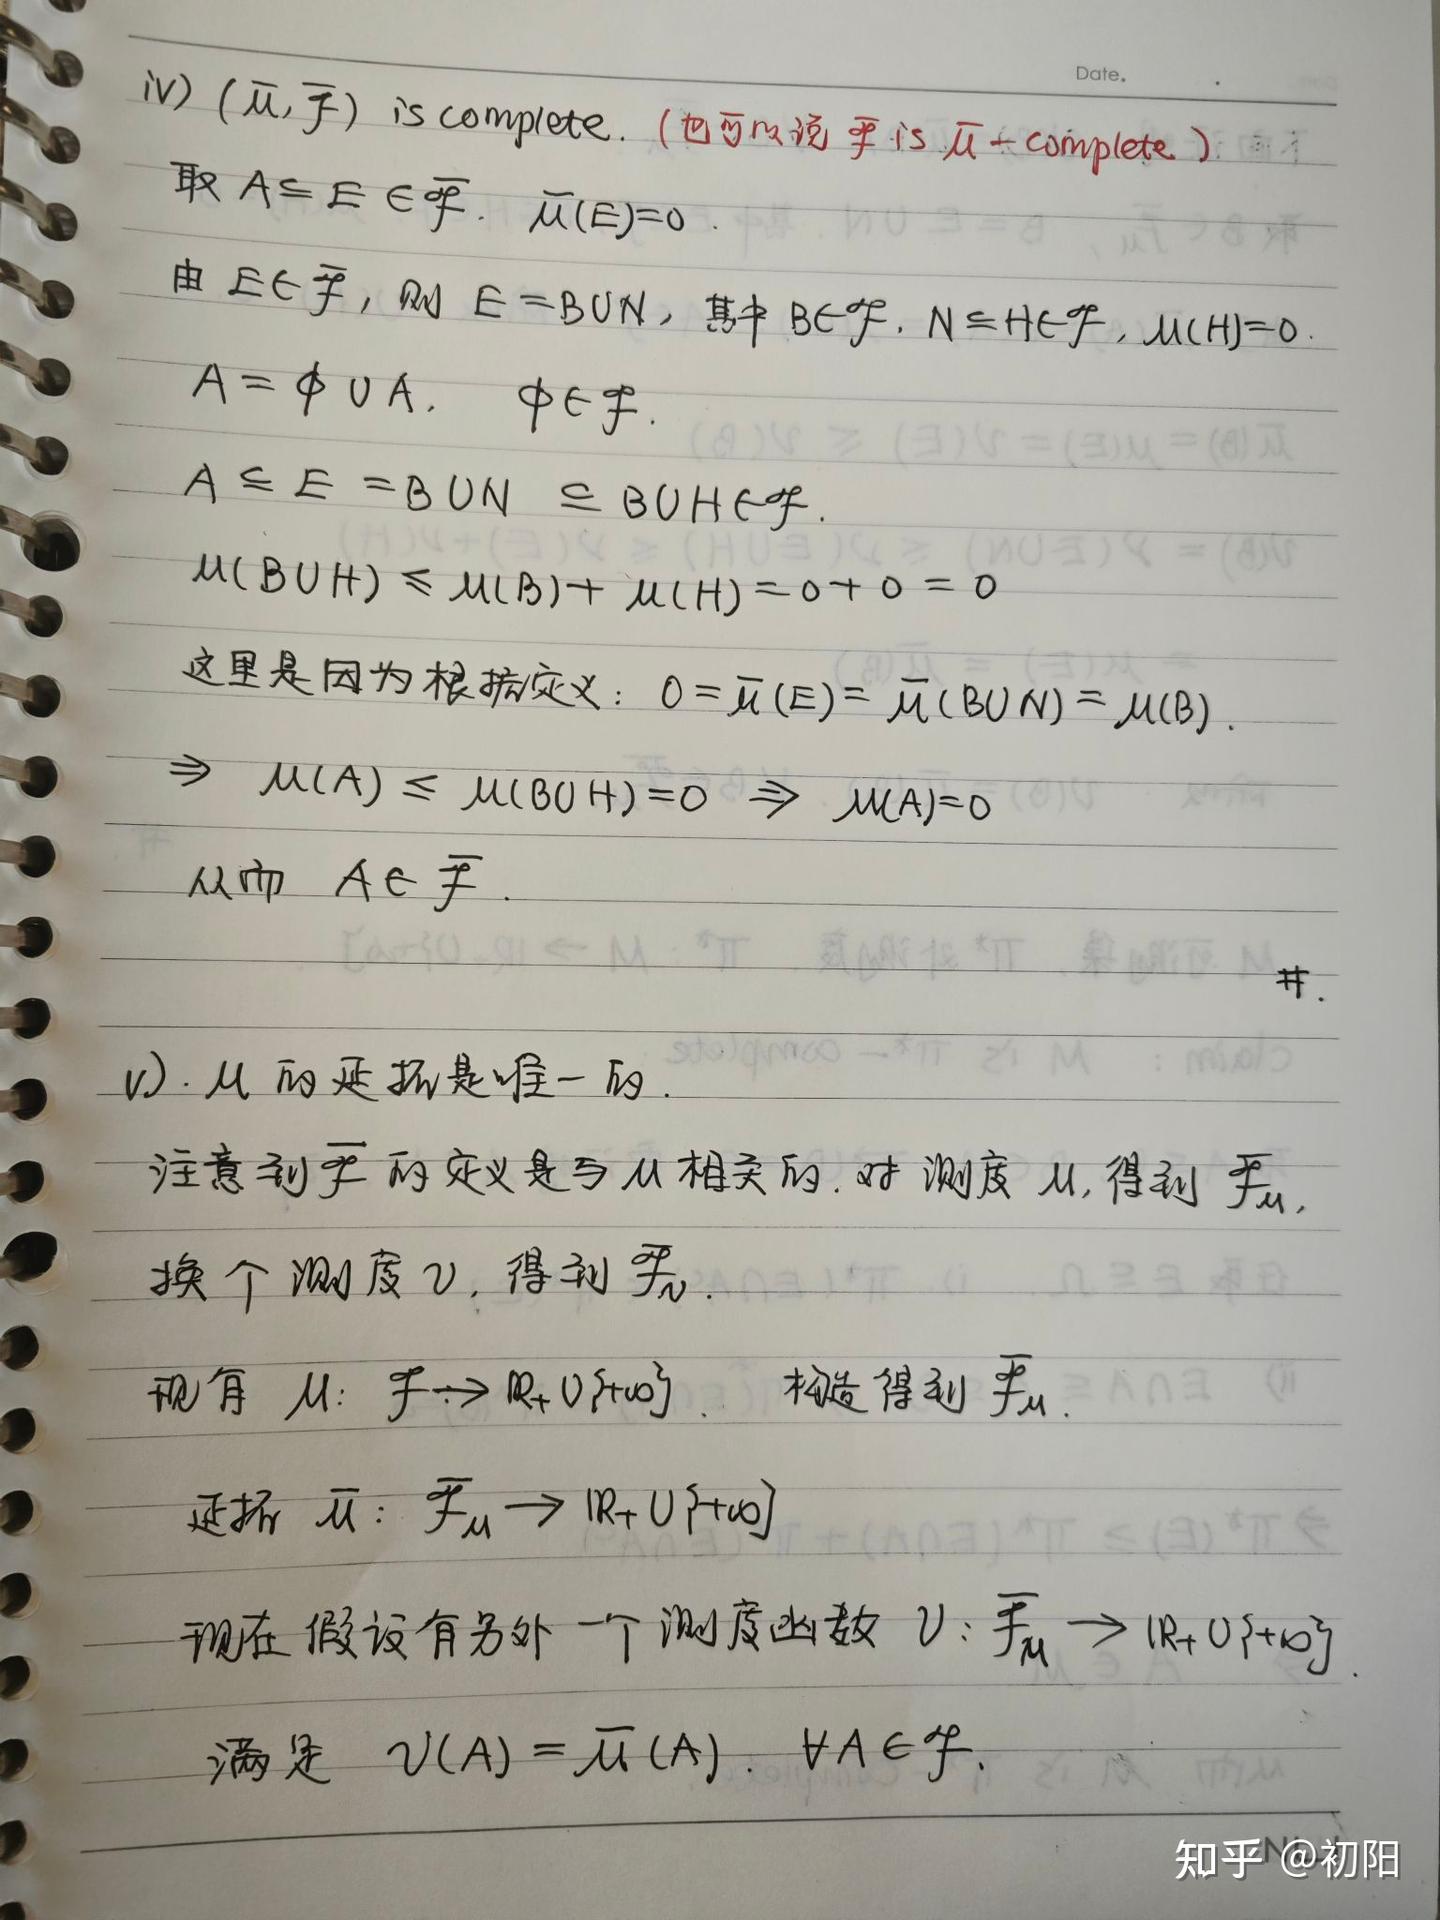 Date.
iv) (μ̄, F̄) is complete. (也可以说 F̄ is μ̄-complete)
取 A ⊆ E ∈ F̄. μ̄(E)=0.
由 E∈F̄, 则 E=B∪N, 其中 B∈F. N⊆H∈F, μ(H)=0.
A = ϕ∪A. ϕ∈F.
A ⊆ E = B∪N ⊆ B∪H∈F.
μ(B∪H) ≤ μ(B)+μ(H)=0+0=0
这里是因为根据定义: 0=μ̄(E)=μ̄(B∪N)=μ(B).
⇒ μ(A) ≤ μ(B∪H)=0 ⇒ μ(A)=0
从而 A∈F̄.
#.
v). μ 的延拓是唯一的.
注意到 F̄ 的定义是与 μ 相关的. 对测度 μ, 得到 F̄μ,
换个测度 ν, 得到 F̄ν.
现有 μ: F→ℝ+∪{+∞}. 构造得到 F̄μ.
延拓 μ̄: F̄μ→ℝ+∪{+∞}
现在假设有另外一个测度函数 ν: F̄μ→ℝ+∪{+∞}.
满足 ν(A)=μ̄(A). ∀A∈F.
知乎 @初阳